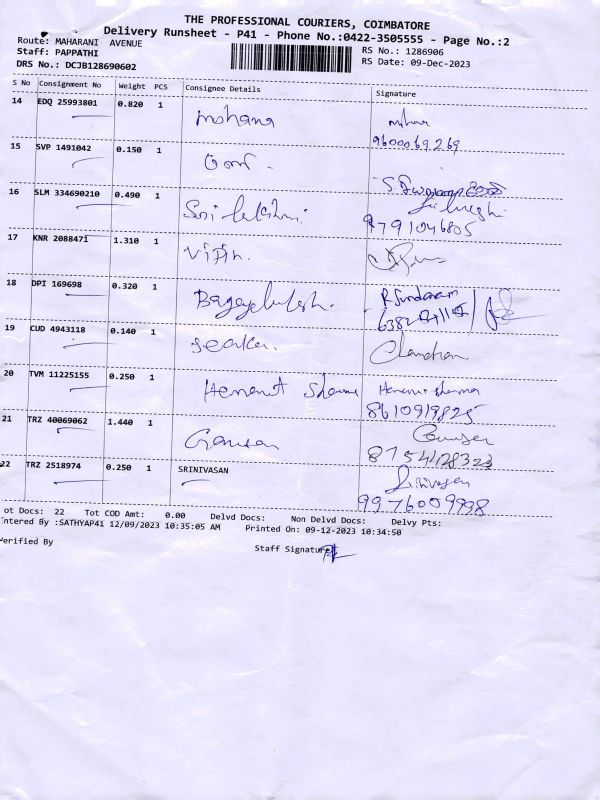 THE PROFESSIONAL COURIERS, COIMBATORE
Delivery Runsheet - P41 - Phone No.:0422-3505555 - Page No.:2
Route: MAHARANI AVENUE
RS No.: 1286906
Staff: PAPPATHI
RS Date: 09-Dec-2023
DRS No.: DCJB128690602
S No Consignment No Weight PCS Consignee Details Signature
14 EDQ 25993801 0.820 1 mohana
9600069269
15 SVP 1491042 0.150 1
16 SLM 334690210 0.490 1
9791046805
17 KNR 2088471 1.310 1 Vipin.
18 DPI 169698 0.320 1 R Sundaram
19 CUD 4943118 0.140 1 Chandran
20 TVM 11225155 0.250 1 Hemant Sharma Hemant Sharma
8610919825
21 TRZ 40069062 1.440 1
8754428323
22 TRZ 2518974 0.250 1 SRINIVASAN Srinivasan
9976009998
ot Docs: 22 Tot COD Amt: 0.00 Delvd Docs: Non Delvd Docs: Delvy Pts:
ntered By :SATHYAP41 12/09/2023 10:35:05 AM Printed On: 09-12-2023 10:34:50
erified By
Staff Signature